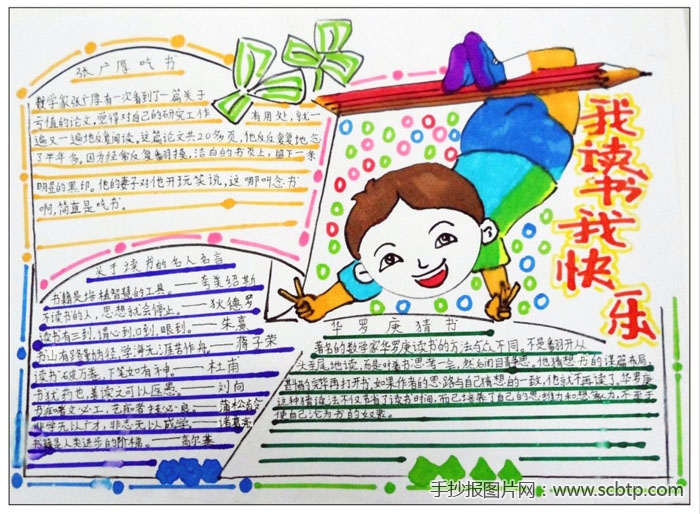 张广厚吃书
数学家张广厚有一次看到了一篇关于
亏值的论文,觉得对自己的研究工作有用处,就一
遍又一遍地反复阅读。这篇论文共20多页,他反反复复地念
了半年多。因为经常反复翻摸,洁白的书页上,留下一条
明显的黑印。他的妻子对他开玩笑说,这哪叫念书
啊,简直是吃书。
我读书我快乐
关于读书的名人名言
书籍是培植智慧的工具。——夸美绍斯
不读书的人,思想就会停止。——狄德罗
读书有三到,谓心到口到,眼到。——朱熹
书山有路勤为径,学海无涯苦作舟。——蒋子荣
读书破万卷,下笔如有神。——杜甫
书犹药也,善读之可以医愚。——刘向
书痴者文必工,艺痴者技必良。——蒲松龄
非学无以广才,非志无以成学。——诸葛亮
书籍是人类进步的阶梯。——高尔基
华罗庚猜书
著名的数学家华罗庚读书的方法与众不同,不是翻开从
头至尾地读,而是对着书思考一会,然后闭目静思。他猜想书的谋篇布局,
斟酌完毕再打开书,如果作者的思路与自己猜想的一致,他就不再读了。华罗庚
这种猜读法不仅节省了读书时间,而且培养了自己的思维力和想象力,不至于
使自己沦为书的奴隶。
手抄报图片网:www.scbtp.com